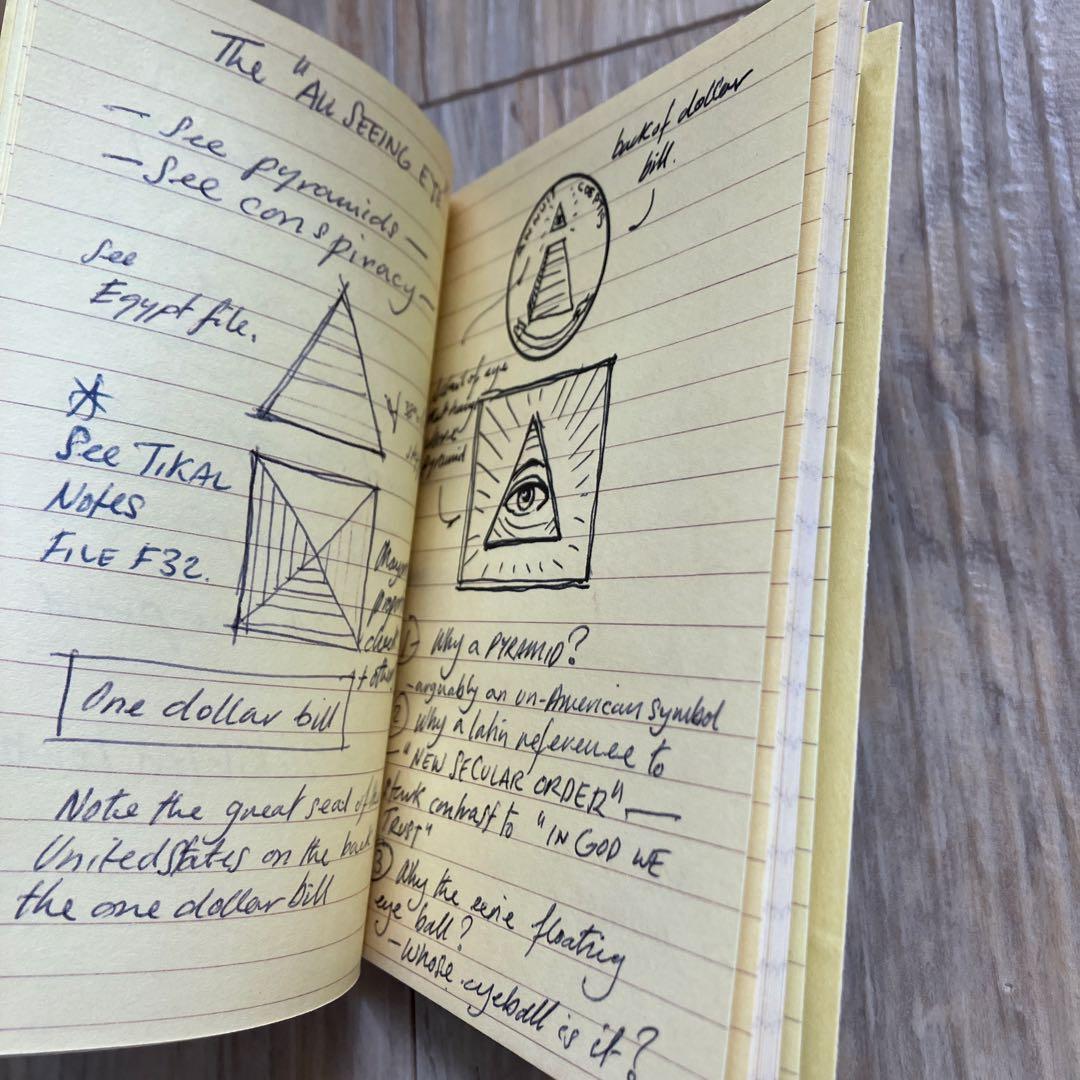 The "ALL SEEING EYE"
— See pyramids —
— See conspiracy —
See
Egypt file.
See TIKAL
Notes
FILE F32.
One dollar bill
Note the great seal of
United States on the back
the one dollar bill
back of dollar
bill.
ANNUIT COEPTIS
of eye
pyramid
1 Why a PYRAMID?
- arguably an un-American symbol
2 Why a latin reference to
- "NEW SECULAR ORDER" —
stark contrast to "IN GOD WE
TRUST"
3 Why the eerie floating
eye ball?
- whose eyeball is it?